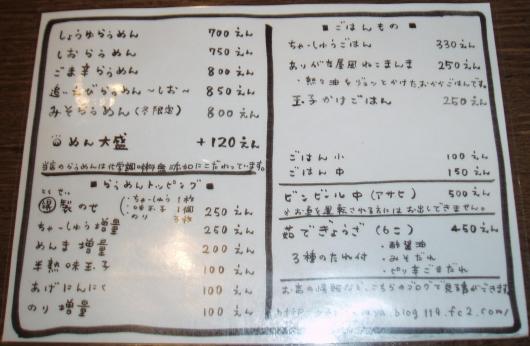 しょうゆらぅめん 700えん
しおらぅめん 750えん
ごま辛らぅめん 800えん
追いえびらぅめん〜しお〜 850えん
みそらぅめん(冬限定) 800えん
めん大盛 +120えん
当店のらぅめんは化学調味料無添加にこだわっています。
■らぅめんトッピング■
とくせい
製のせ
ちゃーしゅう 1枚
味玉子 1個
のり 3枚
250えん
ちゃーしゅう増量 250えん
めんま増量 200えん
半熟味玉子 100えん
あげにんにく 100えん
のり増量 100えん
■ごはんもの■
ちゃーしゅうごはん 330えん
ありがた屋風ねこまんま 250えん
・熱々油をジュッとかけたおかかごはんです。
玉子かけごはん 250えん
ごはん小 100えん
ごはん中 150えん
ビンビール中(アサヒ) 500えん
お車を運転される方にはお出しできません。
茹でぎょうざ(6こ) 450えん
3種のたれ付
・酢醤油
・みそだれ
・ピリ辛ごまだれ
お店の情報など、こちらのブログで見る事ができます。
blog114.fc2.com/